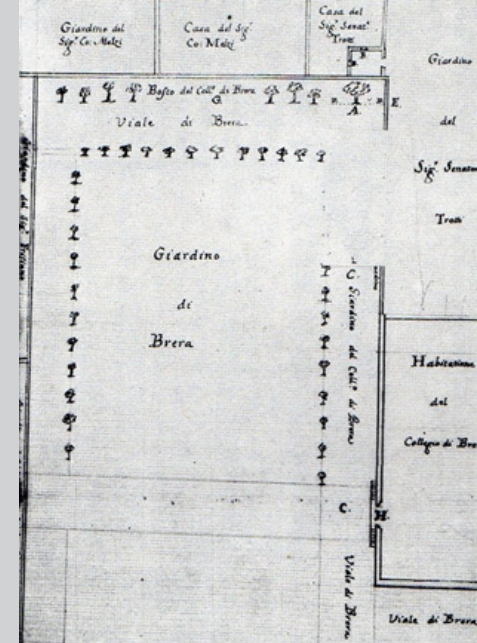 Giardino del
Sig.r Co: Melzi
Casa del Sig.r
Co: Melzi
Casa del
Sig.r Senat.e
Trotti
Giardino
del
Sig.r Senatore
Trotti
Bosco del Coll.o di Brera
G.
Viale di Brera
A.
E.
Giardino
di
Brera
C.
Giardino del Coll.o di Brera
Habitatione
del
Collegio di Bre
C.
H.
Viale di Brera
Viale di Brera